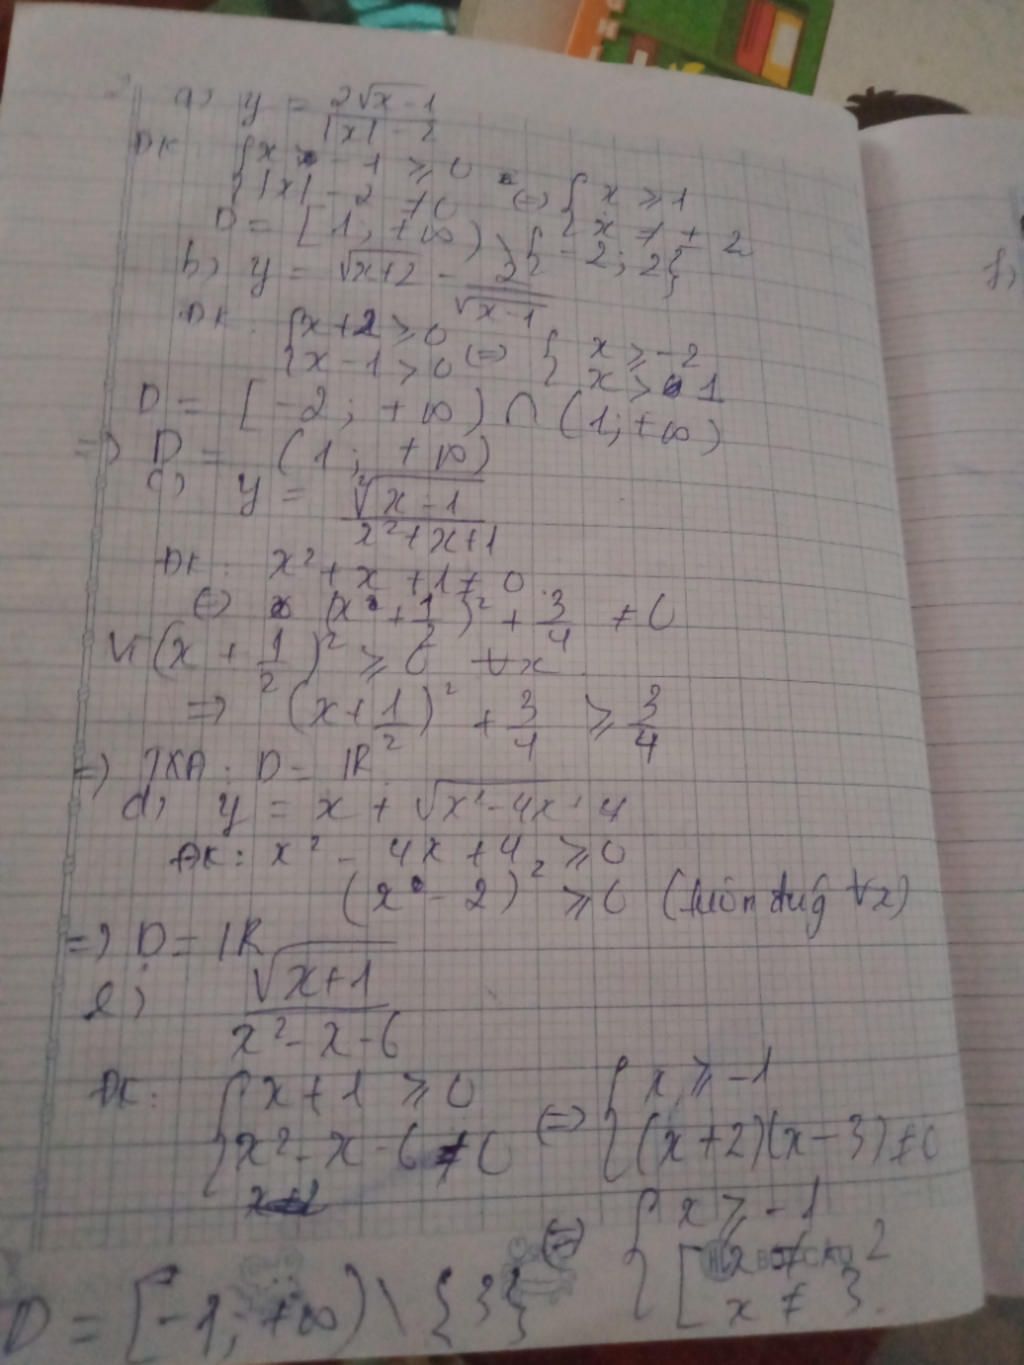 a) y = 2√(x - 1) / (|x| - 2)
ĐK { x - 1 ≥ 0 ⇔ { x ≥ 1
{ |x| - 2 ≠ 0 { x ≠ ± 2
D = [1; +∞) \ {-2; 2}
b) y = √(x+2) - 2/√(x-1)
ĐK: { x + 2 ≥ 0 ⇔ { x ≥ -2
{ x - 1 > 0 { x > 1
D = [-2; +∞) ∩ (1; +∞)
⇒ D = (1; +∞)
c) y = ∛(x - 1) / (x² + x + 1)
ĐK: x² + x + 1 ≠ 0
⇔ (x + 1/2)² + 3/4 ≠ 0
Vì (x + 1/2)² ≥ 0 ∀x
⇒ (x + 1/2)² + 3/4 ≥ 3/4
⇒ TXĐ: D = ℝ
d) y = x + √(x² - 4x + 4)
ĐK: x² - 4x + 4 ≥ 0
(x - 2)² ≥ 0 (luôn đúng ∀x)
⇒ D = ℝ
e) √(x+1) / (x² - x - 6)
ĐK: { x + 1 ≥ 0 ⇔ { x ≥ -1
{ x² - x - 6 ≠ 0 { (x+2)(x-3) ≠ 0
⇔ { x ≥ -1
{ [ x ≠ -2
x ≠ 3.
D = [-1; +∞) \ {3}
f)